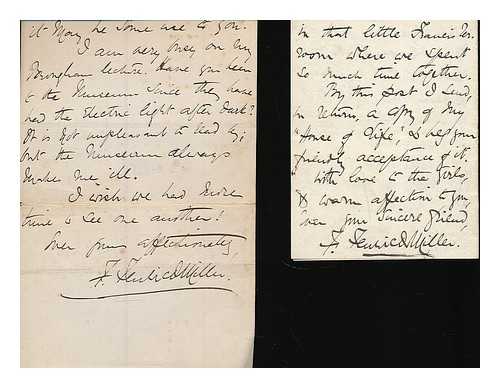 it may be some use to you.
I am very busy on my
Birmingham lecture. Have you been
to the Museum since they have
had the Electric light after dark?
It is not unpleasant to read by,
but the Museum always
makes me ill.
I wish we had more
time to see one another!
Ever yours affectionately,
F. Fenwick Miller.
in that little Francis St.
room where we spent
so much time together.
By this post I send,
in return, a copy of my
"House of Life", & beg your
friendly acceptance of it.
With love to the girls,
& warm affection to you,
Ever your sincere friend,
F. Fenwick Miller.